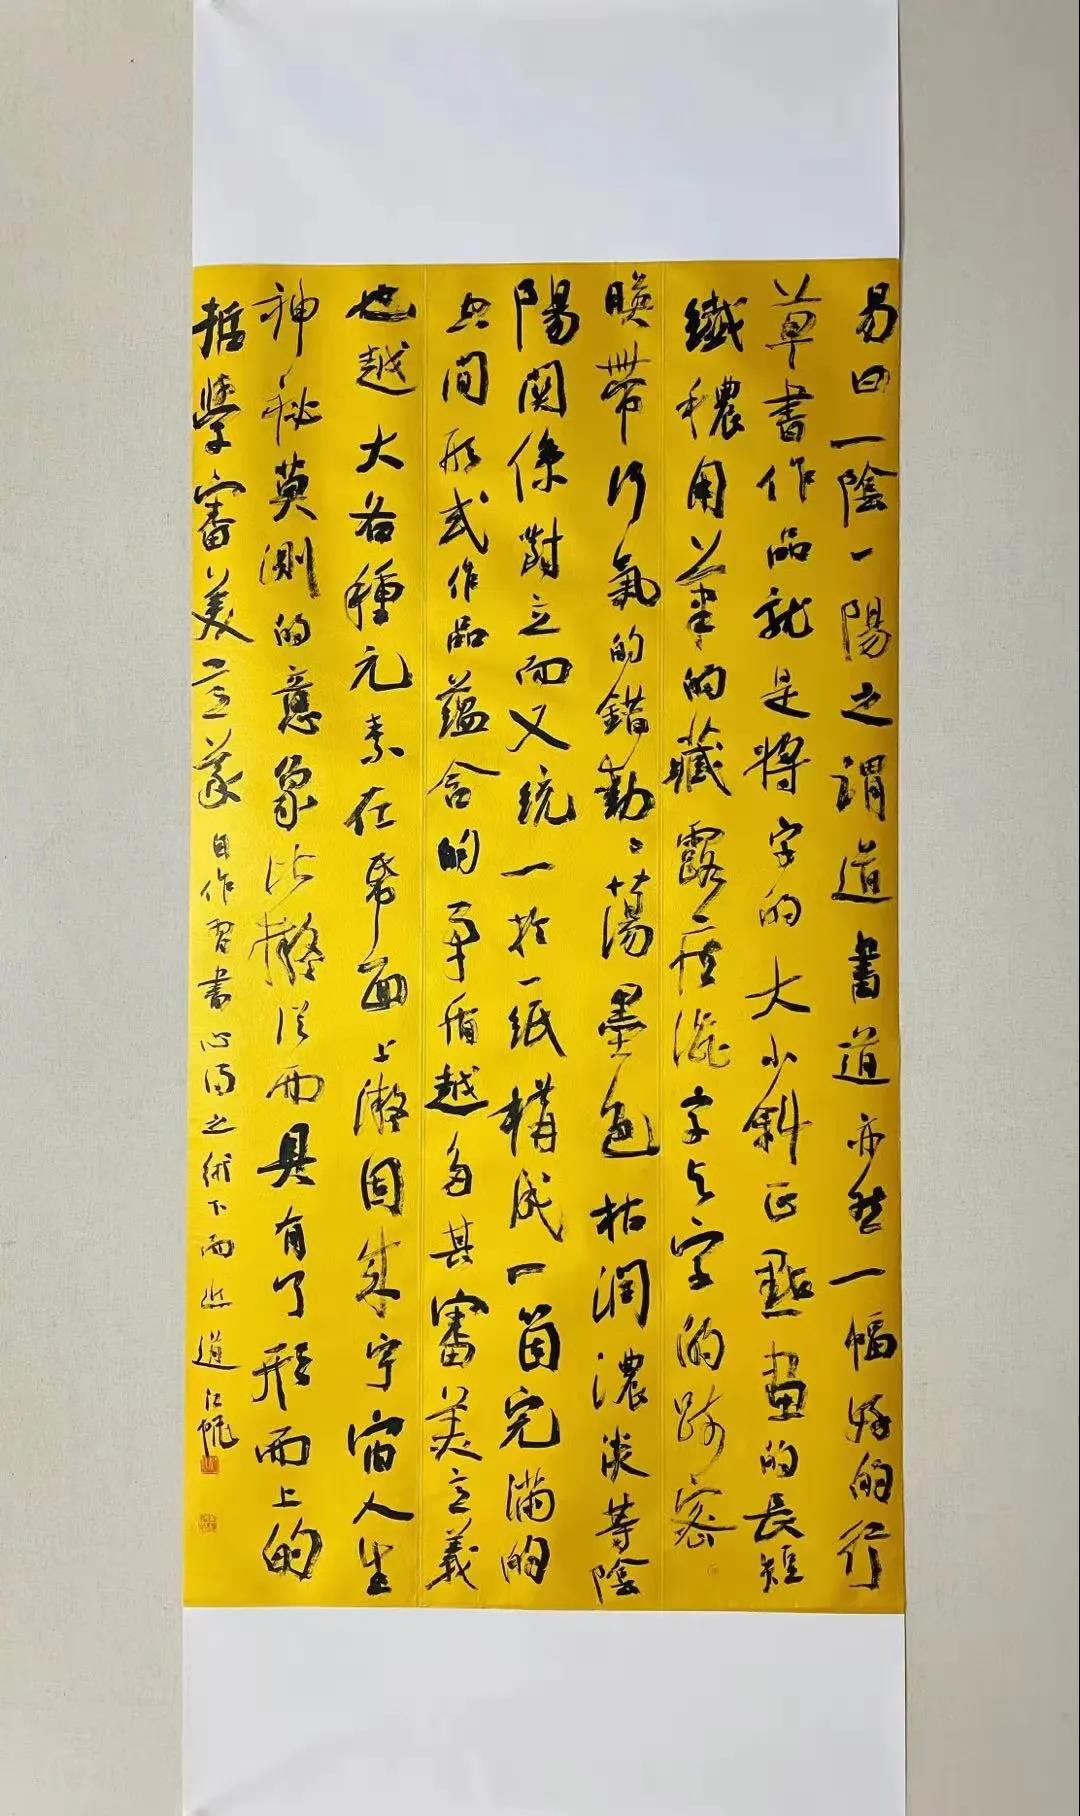 易曰一陰一陽之謂道書道亦然一幅好的行
草書作品就是將字的大小斜正點畫的長短
纖穠用筆的藏露疾澁字与字的疏密
映帶行氣的錯動動蕩墨色枯潤濃淡等陰
陽関係對立而又統一於一紙構成一箇完滿的
空间形式作品蘊含的矛盾越多其審美意義
也越大各種元素在帋面上凝固成宇宙人生
神秘莫測的意象比擬從而具有了形而上的
哲學審美意義自作習書心得之下而 道江帆